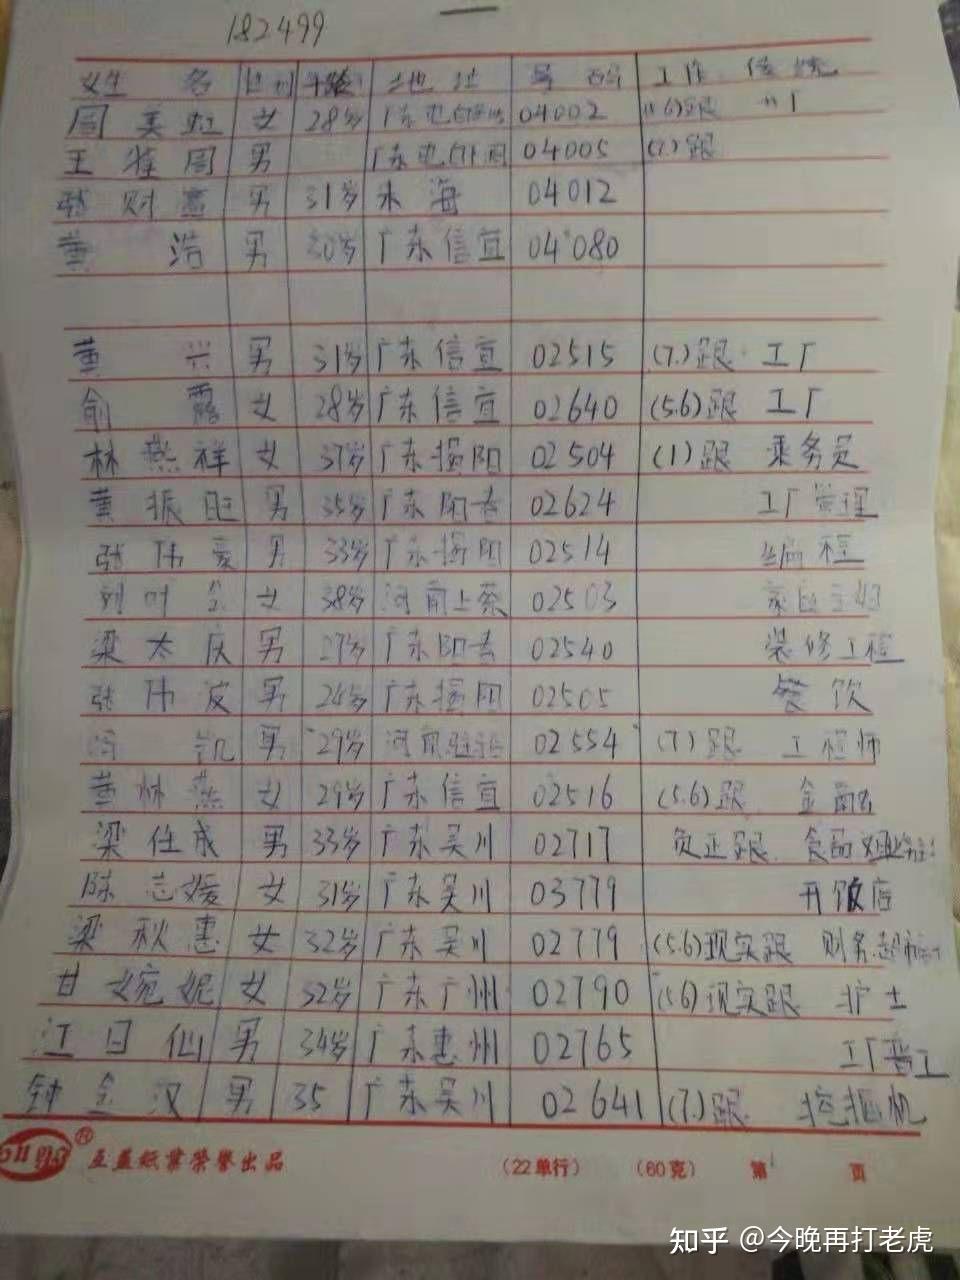 182499
姓 名 性别 年龄 地址 号码 工作 传统
周美虹 女 28岁 广东电白 04002 (5.6)跟
王 周 男 广东电白 04005 (7.)跟
张财 男 31岁 珠海 04012
黄浩 男 30岁 广东信宜 04080
黄兴 男 31岁 广东信宜 02515 (7.)跟 工厂
俞霞 女 28岁 广东信宜 02640 (5.6)跟 工厂
林燕祥 女 37岁 广东揭阳 02504 (1)跟 乘务员
黄振旺 男 35岁 广东阳春 02624 工厂管理
张伟豪 男 33岁 广东揭阳 02514 编程
刘叶 女 38岁 河南上蔡 02503 家庭主妇
梁太庆 男 27岁 广东阳春 02540 装修工程
张伟波 男 24岁 广东揭阳 02505 餐饮
冯凯 男 29岁 河南驻 02554 (7.)跟 工程师
黄林燕 女 29岁 广东信宜 02516 (5.6)跟 金
梁任成 男 33岁 广东吴川 02717 负正跟 食品
陈志媛 女 31岁 广东吴川 03779 开饭店
梁秋惠 女 32岁 广东吴川 02779 (5.6)现实跟 财务
甘婉妮 女 32岁 广东广州 02790 (5.6)现实跟 护士
江日仙 男 34岁 广东惠州 02765 工厂普工
钟金汉 男 35 广东吴川 02641 (7.)跟 挖掘机
互益纸业荣誉出品 (22单行) (60克) 第 页
知乎 @今晚再打老虎